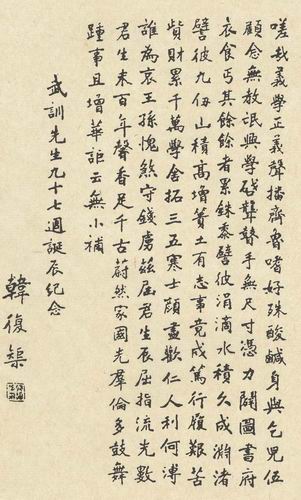 嗟哉義學正義聲播齊魯嗜好殊酸鹹身與乞兒伍
顧念無教氓興學發聾瞽手無尺寸憑力闢圖書府
衣食丐其餘餘者累銖黍譬彼涓滴水積久成淵渚
譬彼九仞山積高增簣土有志事竟成篤行履艱苦
貲財累千萬學舍拓三五寒士顔盡歡仁人利何溥
誰為哀王孫愧煞守錢虜茲屆君生辰屈指流光數
君生未百年聲香足千古蔚然家國光羣倫多鼓舞
踵事且增華詎云無小補
武訓先生九十七週誕辰紀念
韓復榘